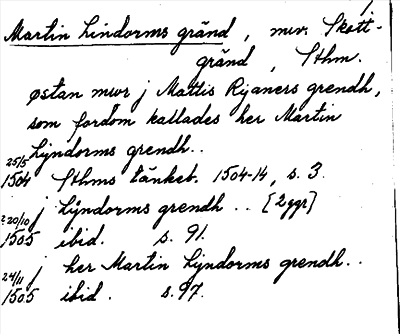 1.
Martin Lindorms gränd, nuv. Skott-
gränd, Sthm.
østan mwr j Mattis Rijaners grendh,
som fordom kallades her Martin
Lyndorms grendh..
25/5
1504 Sthms tänkeb. 1504-14, s. 3.
j Lÿndorms grendh .. [2 ggr]
?20/10
1505 ibid. s. 91.
j her Martin Lyndorms grendh..
24/11
1505 ibid. s. 97.